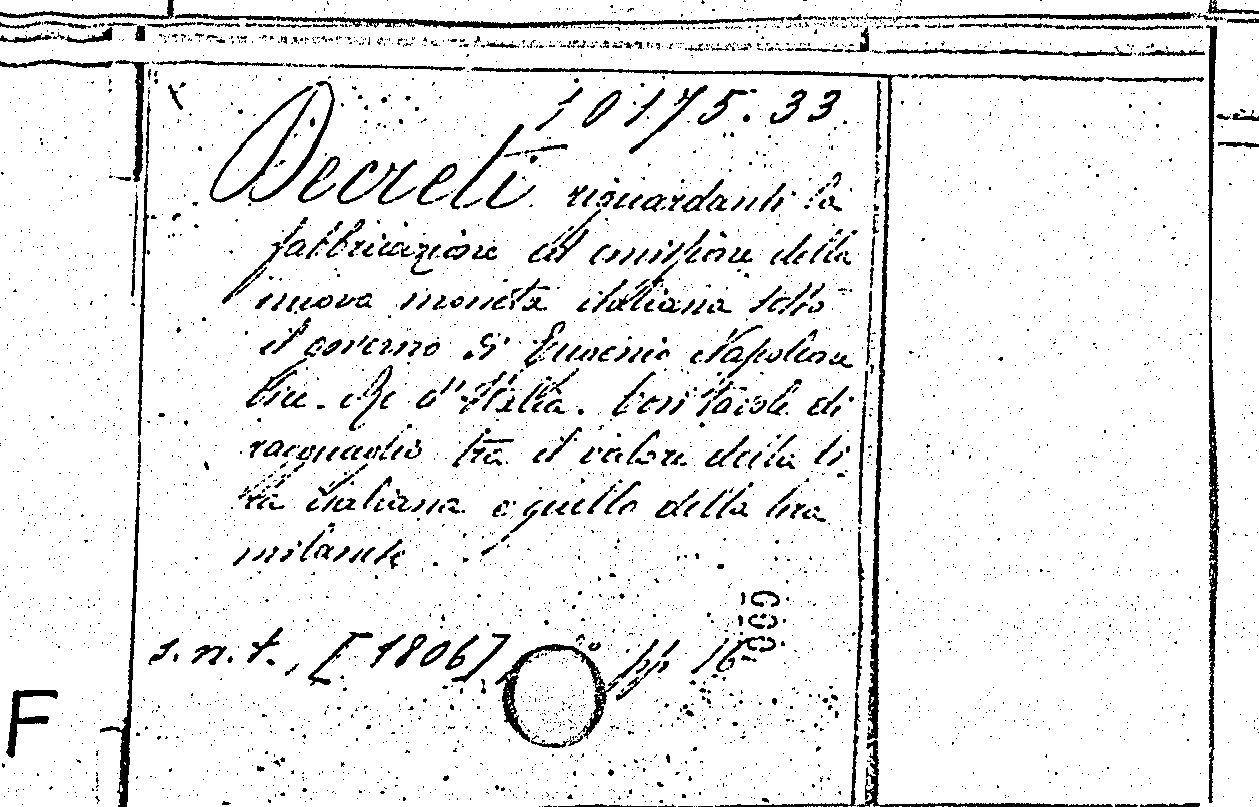 10175.33
Decreti riguardanti la
fabbricazione ed emissione della
nuova moneta italiana sotto
il governo di Eugenio Napoleone
Vice-Re d'Italia. Con tavole di
ragguaglio tra il valore della li-
ra italiana e quello della lira
milanese
s.n.t., [1806] pp 16
F